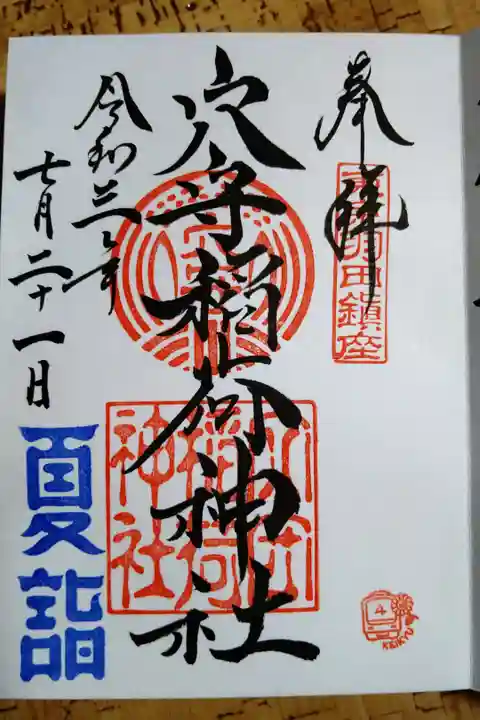 奉拝
東羽田鎮座
穴守稲荷神社
穴守
稲荷
神社
令和三年
七月二十一日
夏詣
4
KEIKYU